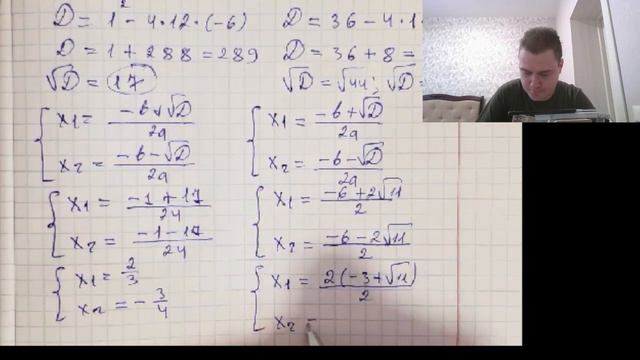 D = 1² - 4·12·(-6)
D = 1 + 288 = 289
√D = 17
x₁ = (-b + √D)/2a
x₂ = (-b - √D)/2a
x₁ = (-1 + 17)/24
x₂ = (-1 - 17)/24
x₁ = 2/3
x₂ = - 3/4
D = 36 - 4·1·
D = 36 + 8 =
√D = √44; √D =
x₁ = (-b + √D)/2a
x₂ = (-b - √D)/2a
x₁ = (-6 + 2√11)/2
x₂ = (-6 - 2√11)/2
x₁ = 2(-3 + √11)/2
x₂ =